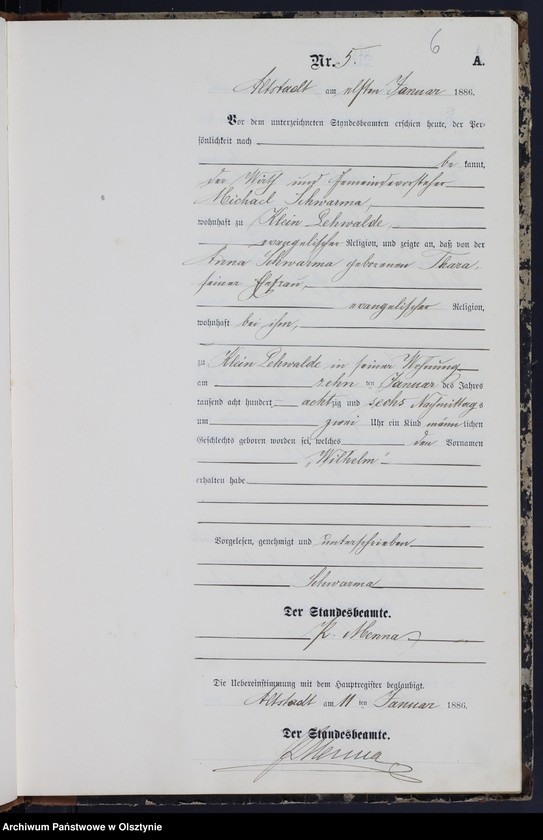 6
Nr. 5. A.
Altstadt am elften Januar 1886.
Vor dem unterzeichneten Standesbeamten erschien heute, der Per-
sönlichkeit nach
be kannt,
der Wirth und Gemeindevorsteher
Michael Schwarma,
wohnhaft zu Klein Lehwalde,
evangelischer Religion, und zeigte an, daß von der
Anna Schwarma geborenen Thara,
seiner Ehefrau,
evangelischer Religion,
wohnhaft bei ihm,
zu Klein Lehwalde in seiner Wohnung
am zehn ten Januar des Jahres
tausend acht hundert achtzig und sechs Nachmittags
um zwei Uhr ein Kind männlichen
Geschlechts geboren worden sei, welches den Vornamen
"Wilhelm"
erhalten habe
Vorgelesen, genehmigt und unterschrieben
Schwarma
Der Standesbeamte.
Menna
Die Uebereinstimmung mit dem Hauptregister beglaubigt.
Altstadt am 11 ten Januar 1886.
Der Standesbeamte.
Menna
Archiwum Państwowe w Olsztynie